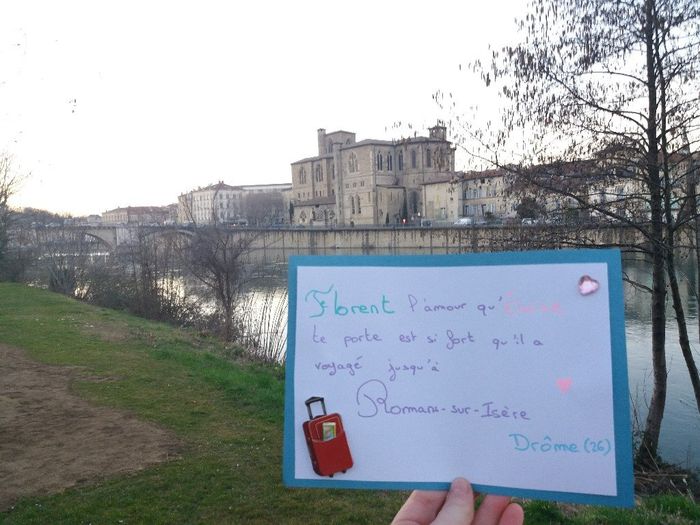 Florent l'amour qu'
te porte est si fort qu'il a
voyagé jusqu'à
Romans-sur-Isère
Drôme (26)